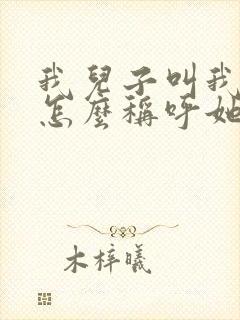 我兒子叫我
怎麼稱呼她
木梓曦